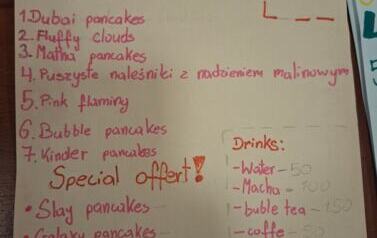 1.Dubai pancakes
2. Fluffy clouds
3. Matha pancakes
4. Puszyste naleśniki z nadzieniem malinowym
5. Pink flaming
6. Bubble pancakes
7. Kinder pancakes
Special offert!
• Slay pancakes
• Galaxy pancakes
Drinks:
- Water - 50
- Macha - 100
- buble tea - 150
- coffe - 50